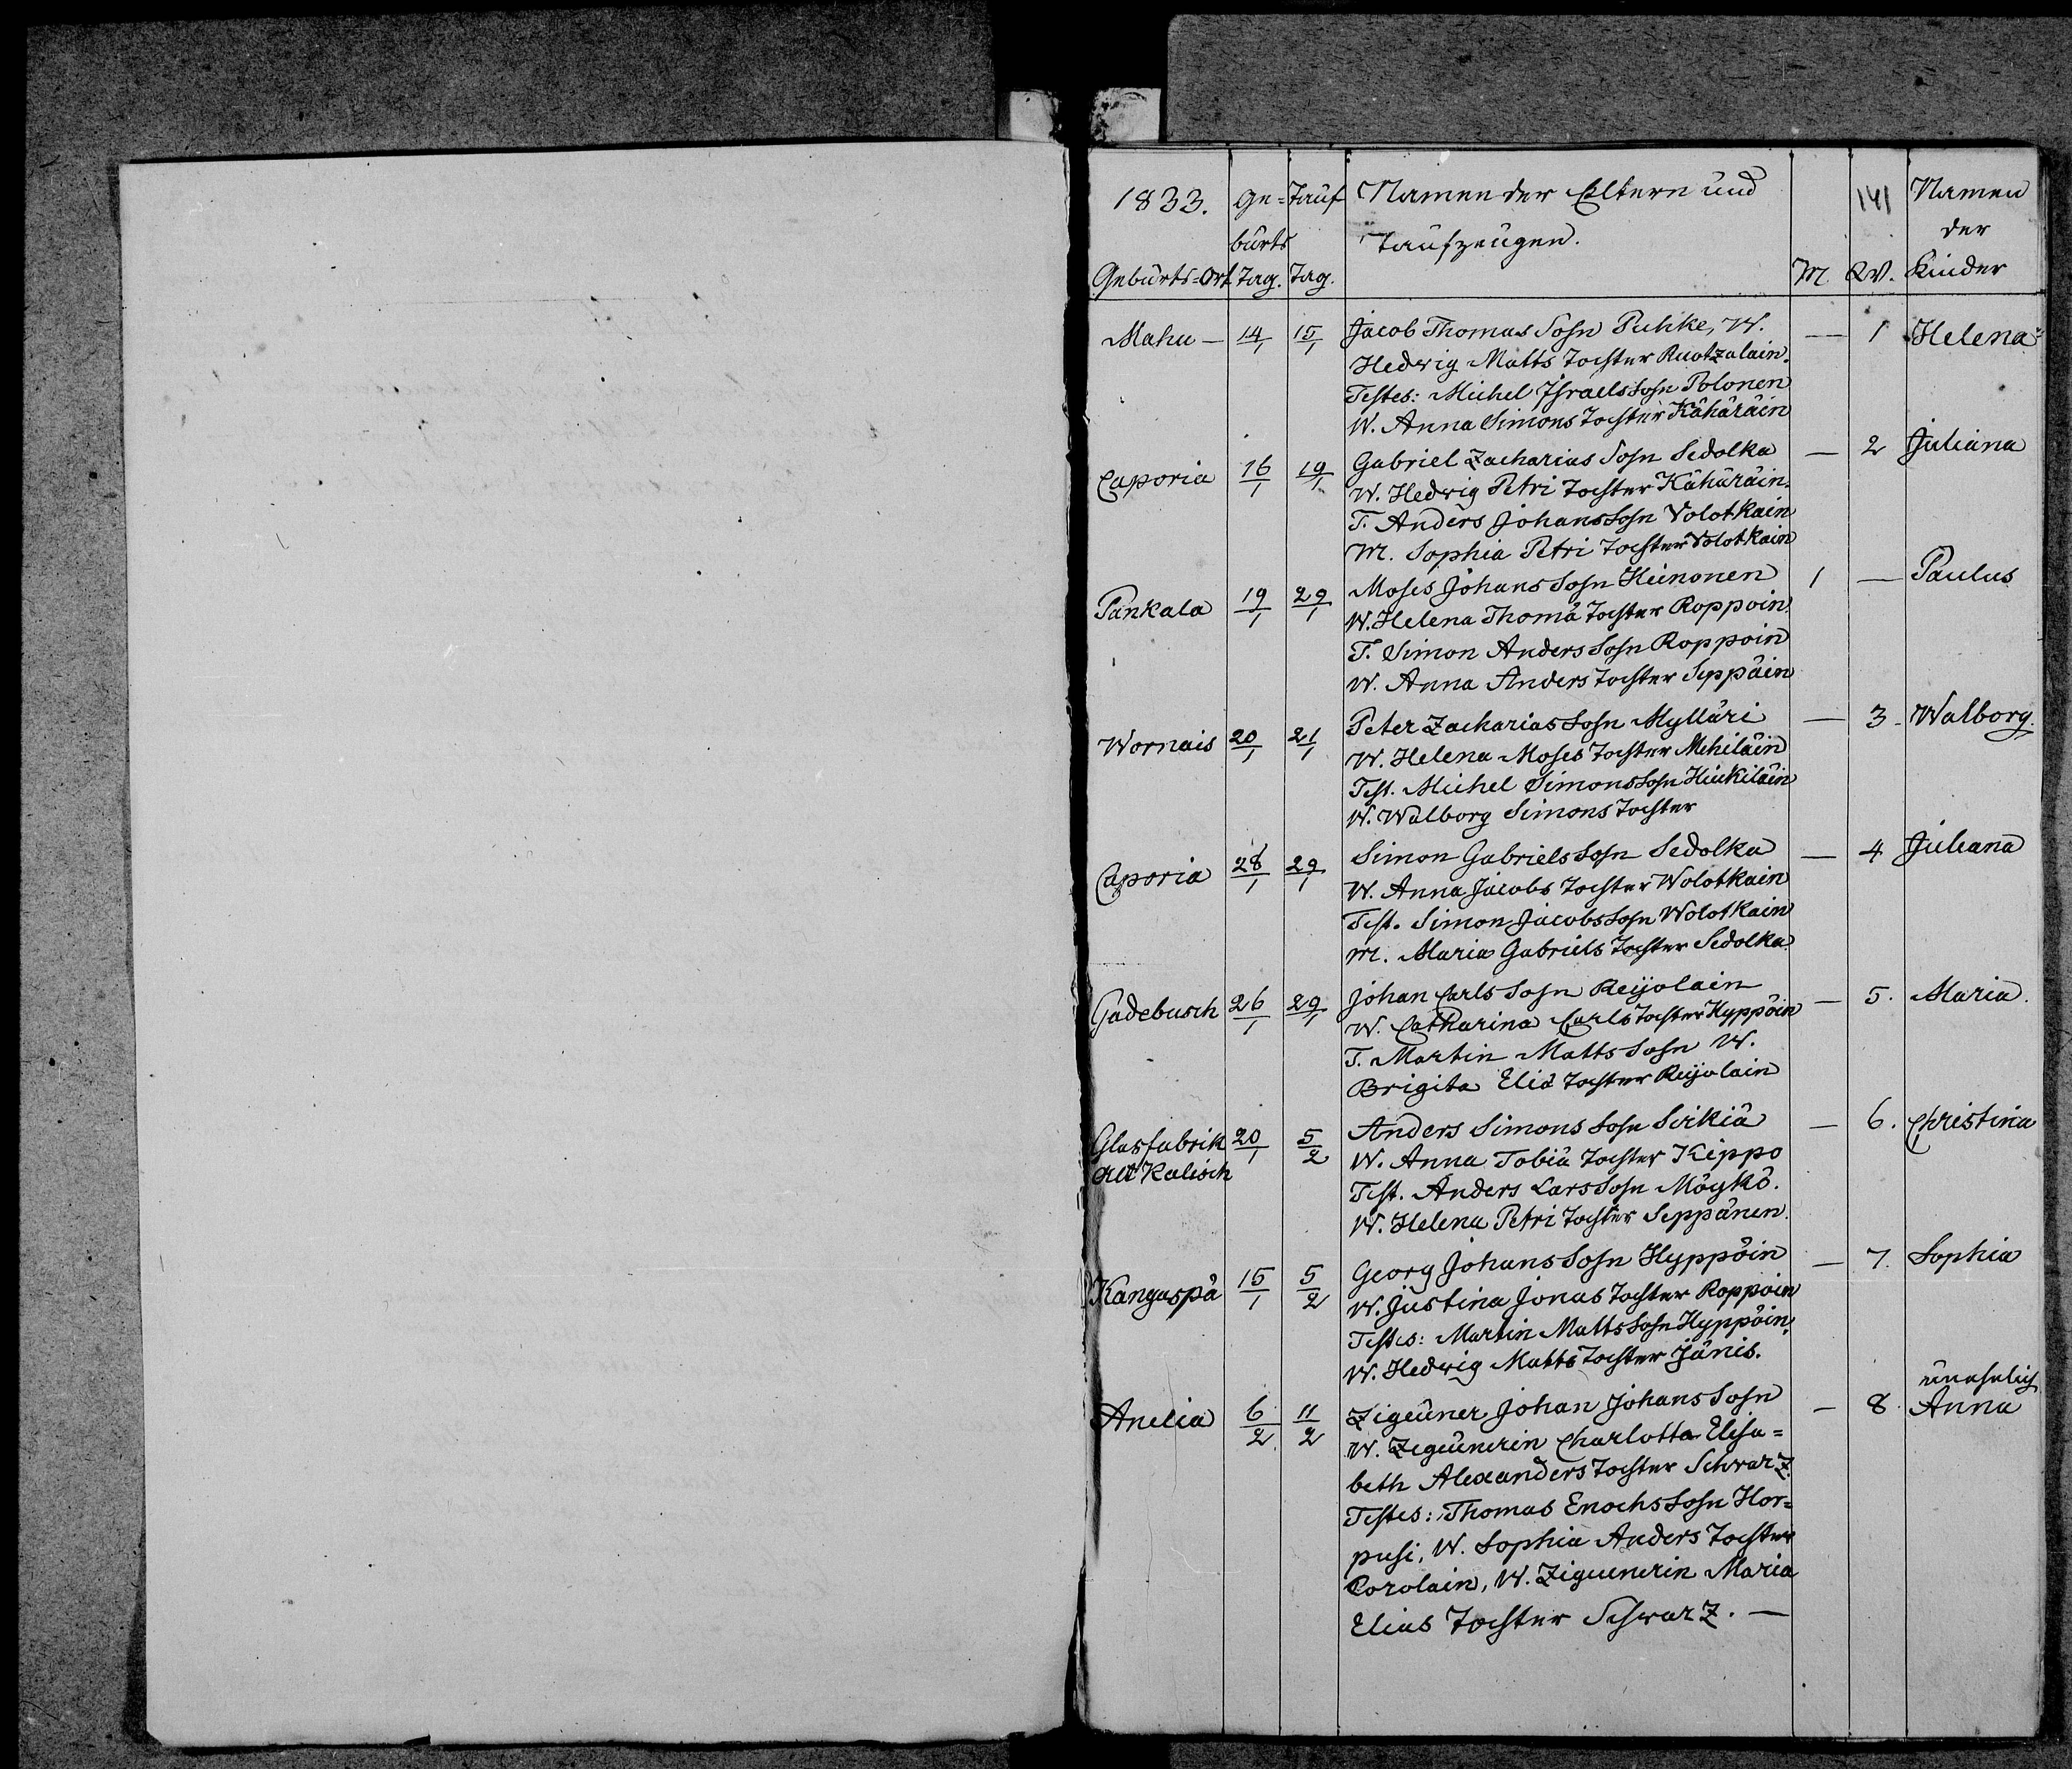 1833. Ge= Tauf Namen der Eltern und 141 Namen
burts Taufzeugen. der
Geburts=Ort Tag. Tag. M. W. Kinder
Mahu — 14/1 15/1 Jacob Thomas Sohn Puhke, W. — 1 Helena
Hedwig Matts Tochter Ruotzalain.
Testes: Michel Israels Sohn Polonen
W. Anna Simons Tochter Kähäräin
Caporia 16/1 19/1 Gabriel Zacharias Sohn Sedolka — 2 Juliana
W. Hedwig Petri Tochter Kähäräin.
T. Anders Johans Sohn Volotkain
M. Sophia Petri Tochter Volotkain
Pankala 19/1 29/1 Moses Johans Sohn Heinonen 1 — Paulus
W. Helena Thomä Tochter Roppoin
T. Simon Anders Sohn Roppoin
W. Anna Anders Tochter Seppäin
Wornais 20/1 21/1 Peter Zacharias Sohn Mylläri — 3. Walborg.
W. Helena Moses Tochter Mehiläin
Test. Michel Simons Sohn Hinkiläin
W. Walborg Simons Tochter
Caporia 28/1 29/1 Simon Gabriels Sohn Sedolka — 4 Juliana
W. Anna Jacobs Tochter Wolotkain
Test. Simon Jacobs Sohn Wolotkain
M. Maria Gabriels Tochter Sedolka
Gadebusch 26/1 29/1 Johan Carls Sohn Reijolain — 5. Maria.
W. Catharina Carls Tochter Hyppöin
T. Martin Matts Sohn W.
Brigita Eliä Tochter Reijolain
Glasfabrik 20/1 5/2 Anders Simons Sohn Sirkiä — 6. Christina
Alt Kalisch W. Anna Tobiä Tochter Kippo
Test. Anders Lars Sohn Möykö.
W. Helena Petri Tochter Seppänen.
Kanguspä 15/1 5/2 Georg Johans Sohn Hyppöin — 7. Sophia
W. Justina Jonas Tochter Roppoin
Testes: Martin Matts Sohn Hyppöin,
W. Hedwig Matts Tochter Jänis.
unehelig
Anelia 6/2 11/2 Zigeuner Johan Johans Sohn — 8. Anna
W. Zigeunerin Charlotta Elisa=
beth Alexanders Tochter Schwarz.
Testes: Thomas Enochs Sohn Hor=
pusi, W. Sophia Anders Tochter
Corolain, W. Zigeunerin Maria
Elias Tochter Schwarz. —